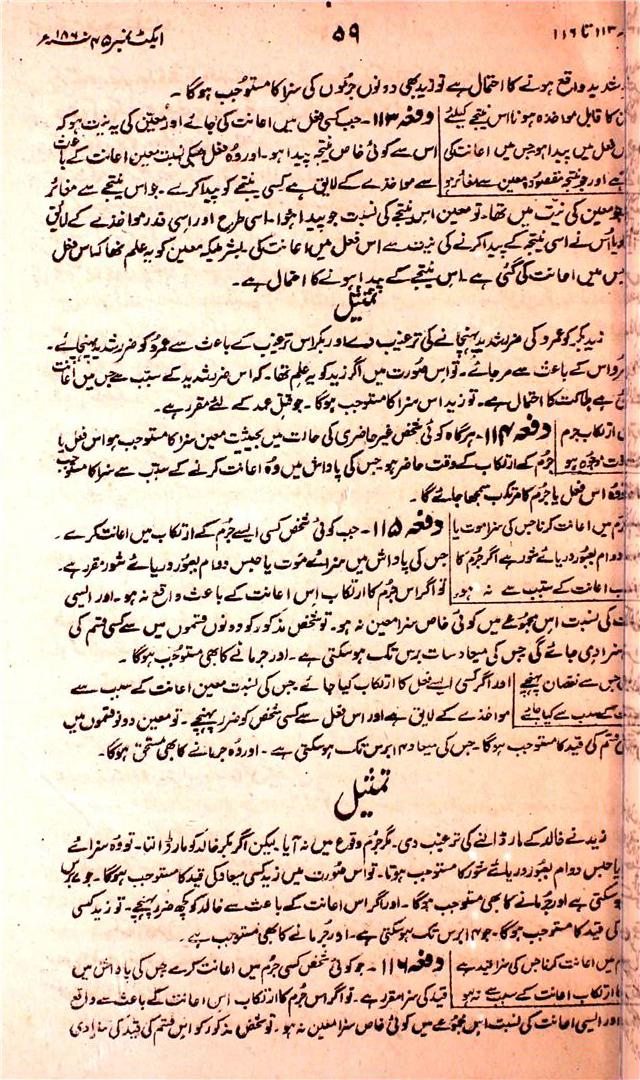 ۱۱۳ تا ۱۱۶
۵۹
ایکٹ نمبر ۴۵ ۱۸۶۰ء
شدید واقع ہونے کا احتمال ہے تو زید بھی دونوں جرموں کی سزا کا مستوجب ہوگا ۔
کا قابل مواخذہ ہونا اس نتیجے کیلئے
فعل میں پیدا ہو جس میں اعانت کی
ہے اور جو نتیجہ مقصودہ معین سے مغائر ہو
دفعہ ۱۱۳ ۔ جب کسی فعل میں اعانت کی جائے اور معین کی یہ نیت ہو کہ
اس سے کوئی خاص نتیجہ پیدا ہو ۔ اور وہ فعل جسکی نسبت معین اعانت کے باعث
سے مواخذے کے لایق ہے کسی نتیجے کو پیدا کرے ۔ جو اس نتیجے سے مغائر
جو معین کی نیت میں تھا ۔ تو معین اس نتیجے کی نسبت جو پیدا ہوا ۔ اسی طرح اور اسی قدر مواخذے کے لائق
گویا اُس نے اسی نتیجے کے پیدا کرنے کی نیت سے اس فعل میں اعانت کی بشرطیکہ معین کو یہ علم تھا کہ اس فعل
جس میں اعانت کی گئی ہے ۔ اس نتیجے کے پیدا ہونے کا احتمال ہے ۔
تمثیل
زید بکر کو عمرو کی ضرر شدید پہنچانے کی ترغیب دے اور بکر اس ترغیب کے باعث سے عمرو کو ضرر شدید پہنچائے ۔
عمرو اس کے باعث سے مر جائے ۔ تو اس صُورت میں اگر زید کو یہ علم تھا ۔ کہ اس ضرر شدید کے سبب سے جس میں اعانت
ہے ہلاکت کا احتمال ہے ۔ تو زید اس سزا کا مستوجب ہوگا ۔ جو قتل عمد کے لئے مقرر ہے ۔
ارتکاب جرم
وقت موجود ہو
دفعہ ۱۱۴ ۔ ہرگاہ کوئی شخص غیر حاضری کی حالت میں بحیثیت معین سزا کا مستوجب ہو اس فعل یا
جرم کے ارتکاب کے وقت حاضر ہو جس کی پاداش میں وہ اعانت کرنے کے سبب سے سزا کا مستوجب
تو وہ اس فعل یا جرم کا مرتکب سمجھا جائے گا ۔
جرم میں اعانت کرنا جس کی سزا موت یا
دوام بعبور دریائے شور ہے اگر جرم کا
اعانت کے سبب سے نہ ہو
دفعہ ۱۱۵ ۔ جب کوئی شخص کسی ایسے جرم کے ارتکاب میں اعانت کرے ۔
جس کی پاداش میں سزائے موت یا حبس دوام بعبور دریائے شور مقرر ہے ۔
تو اگر اس جرم کا ارتکاب اس اعانت کے باعث واقع نہ ہو ۔ اور ایسی
کی نسبت اس مجموعے میں کوئی خاص سزا معین نہ ہو ۔ تو شخص مذکور کو دونوں قسموں میں سے کسی قسم کی
سزا دی جائے گی جس کی میعاد سات برس تک ہو سکتی ہے ۔ اور جرمانے کا بھی مستوجب ہوگا ۔
جس سے نقصان پہنچے
کے سبب سے کیا جائے
اور اگر کسی ایسے فعل کا ارتکاب کیا جائے جس کی نسبت معین اعانت کے سبب سے
مواخذے کے لایق ہے اور اس فعل سے کسی شخص کو ضرر پہنچے ۔ تو معین دونو قسموں میں
قسم کی قید کا مستوجب ہوگا ۔ جس کی میعاد ۱۴ برس تک ہو سکتی ہے ۔ اور وہ جرمانے کا بھی مستحق ہوگا ۔
تمثیل
زید نے خالد کے مار ڈالنے کی ترغیب دی ۔ مگر جرم وقوع میں نہ آیا ۔ لیکن اگر بکر خالد کو مار ڈالتا ۔ تو وہ سزائے
یا حبس دوام بعبور دریائے شور کا مستوجب ہوتا ۔ تو اس صورت میں زید کسی میعاد کی قید کا مستوجب ہوگا ۔ جو ۷ برس
ہوسکتی ہے اور جرمانے کا بھی مستوجب ہوگا ۔ اور اگر اس اعانت کے باعث سے خالد کو کچھ ضرر پہنچے ۔ تو زید کسی
کی قید کا مستوجب ہوگا ۔ جو ۱۴ برس تک ہو سکتی ہے ۔ اور جرمانے کا بھی مستوجب ہے ۔
میں اعانت کرنا جس کی سزا قید ہے
ارتکاب اعانت کے سبب سے نہ ہو
دفعہ ۱۱۶ ۔ جو کوئی شخص کسی جرم میں اعانت کرے جس کی پاداش میں
قید کی سزا مقرر ہے ۔ تو اگر اس جرم کا ارتکاب اس اعانت کے باعث سے واقع
اور ایسی اعانت کی نسبت اس مجموعے میں کوئی خاص سزا معین نہ ہو ۔ تو شخص مذکور کو اس قسم کی قید کی سزا دی